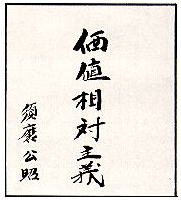 価値相対主義
須磨公昭